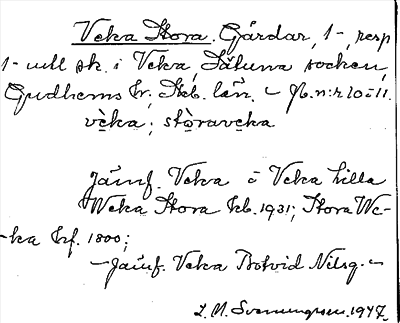 Veka Stora. Gårdar, 1-, resp
1- utl sk. i Veka, Sätuna socken,
Gudhems hr, Skb. län. - Jb. n:r 10 o 11.
vèka; stòravèka
Jämf. Veka o Veka Lilla
Weka Stora kb. 1931; Stora We-
-ka krf. 1800;
- Jämf. Veka Botvid Nilsg. -
L. M. Svenungsson. 1947.